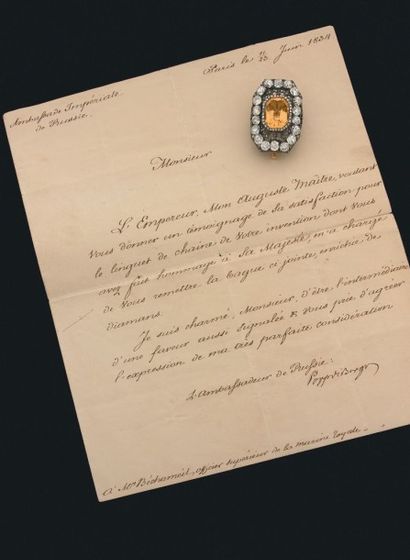 Paris le 11/23 Juin 1834
Ambassade Impériale
de Russie.
Monsieur
L'Empereur, Mon Auguste Maître, voulant
vous donner un témoignage de Sa satisfaction pour
le linguet de chaîne de Votre invention dont Vous
avez fait hommage à Sa Majesté, m'a chargé
de Vous remettre la bague ci jointe, enrichie de
diamans.
Je suis charmé, Monsieur, d'être l'intermédiaire
d'une faveur aussi signalée & Vous prie d'agréer
l'expression de ma très parfaite considération
L'Ambassadeur de Russie:
Pozzo di Borgo
à Mr Béchameil, officier supérieur de la marine royale.